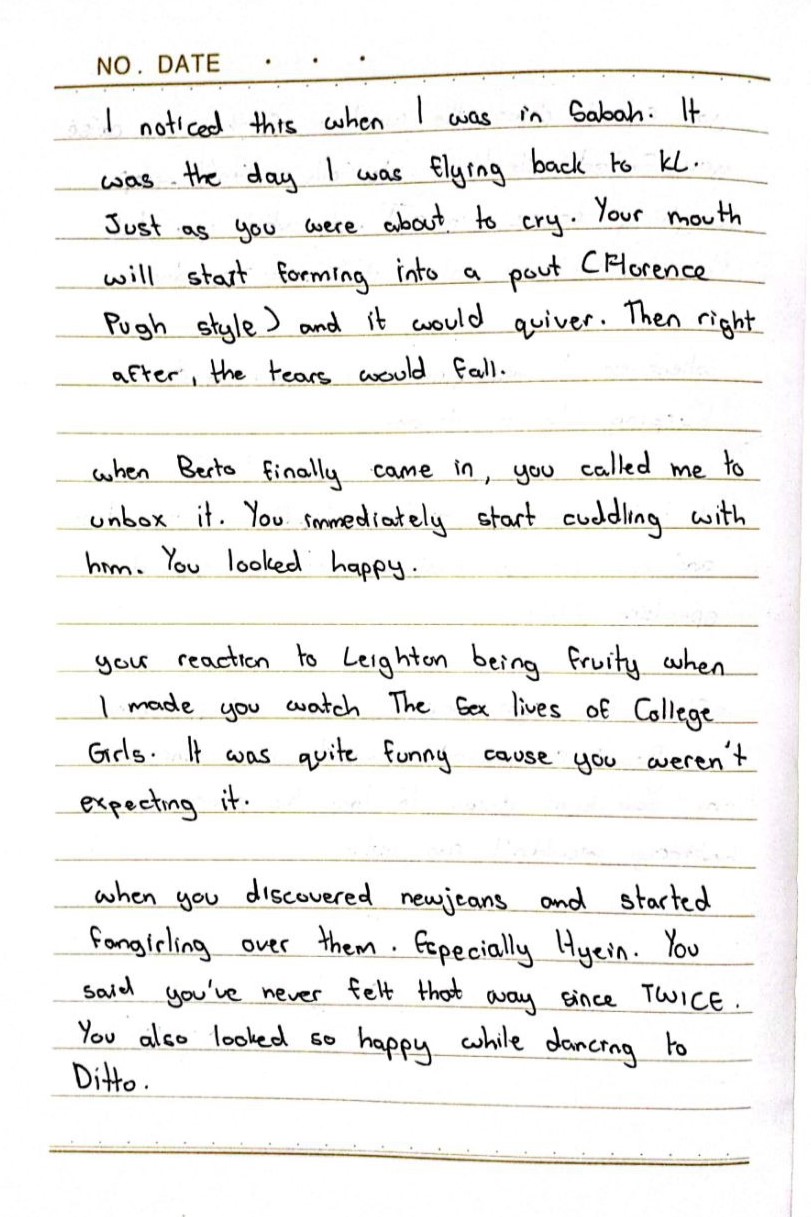 NO. DATE . . .
I noticed this when I was in Sabah. It
was the day I was flying back to KL.
Just as you were about to cry. Your mouth
will start forming into a pout (Florence
Pugh style) and it would quiver. Then right
after, the tears would fall.
when Berto finally came in, you called me to
unbox it. You immediately start cuddling with
him. You looked happy.
your reaction to Leighton being fruity when
I made you watch The Sex lives of College
Girls. It was quite funny cause you weren't
expecting it.
when you discovered newjeans and started
fangirling over them. Especially Hyein. You
said you've never felt that way since TWICE.
You also looked so happy while dancing to
Ditto.